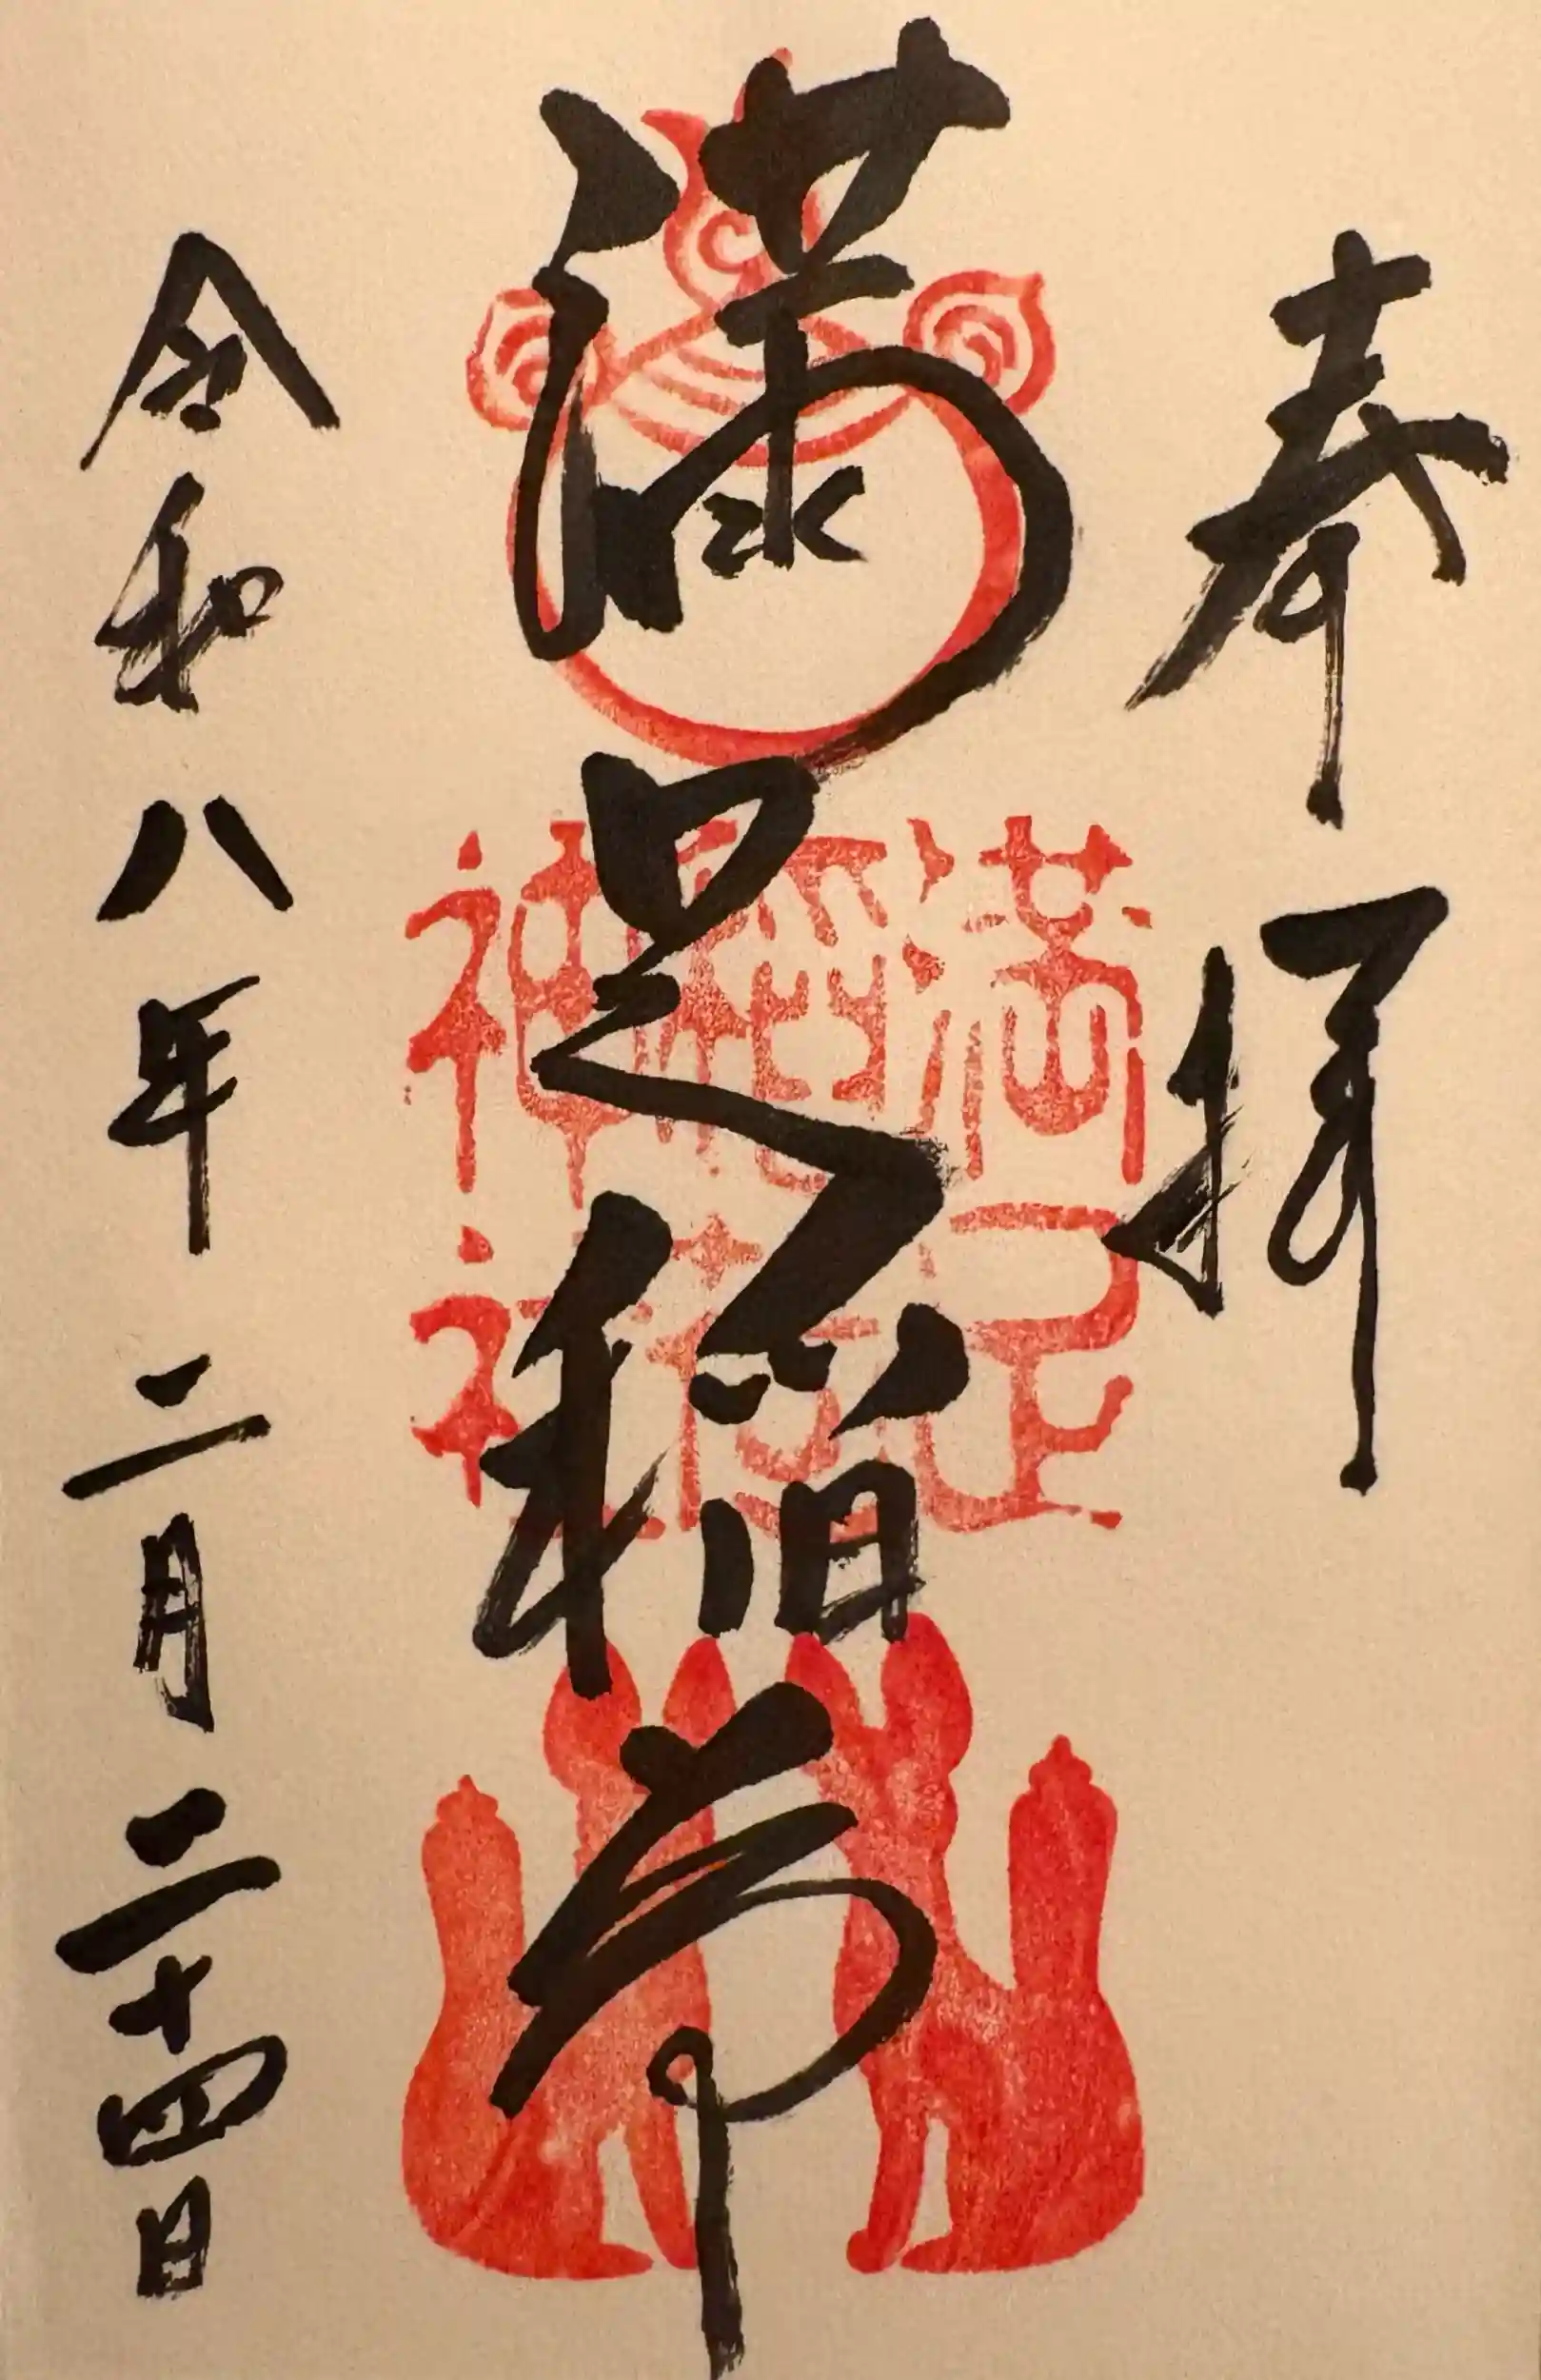 奉拝
満足稲荷
満足
稲荷
神社
令和八年二月二十四日